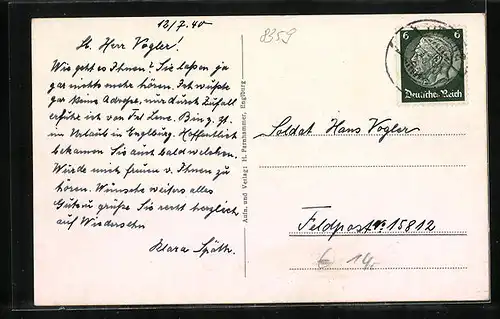 13/7.40
8359
S. Herr Vogler!
Wie geht es Ihnen? Sie laßen ja
gar nichts mehr hören. Ich wußte
gar keine Adresse, nur durch Zufall
erfuhr ich von Frl Lene. Bin z. Zt.
im Urlaub in Englburg. Hoffentlich
bekomen Sie auch bald welchen.
Würde mich freuen v. Ihnen zu
hören. Wünsche weiters alles
Gute u. grüße Sie recht herzlich,
auf Wiedersehn
Klara Späth.
Aufn. und Verlag: H. Parnhammer, Englburg
6 6
Deutsches Reich
Soldat Hans Vogler
Feldpost No 15812
14,-